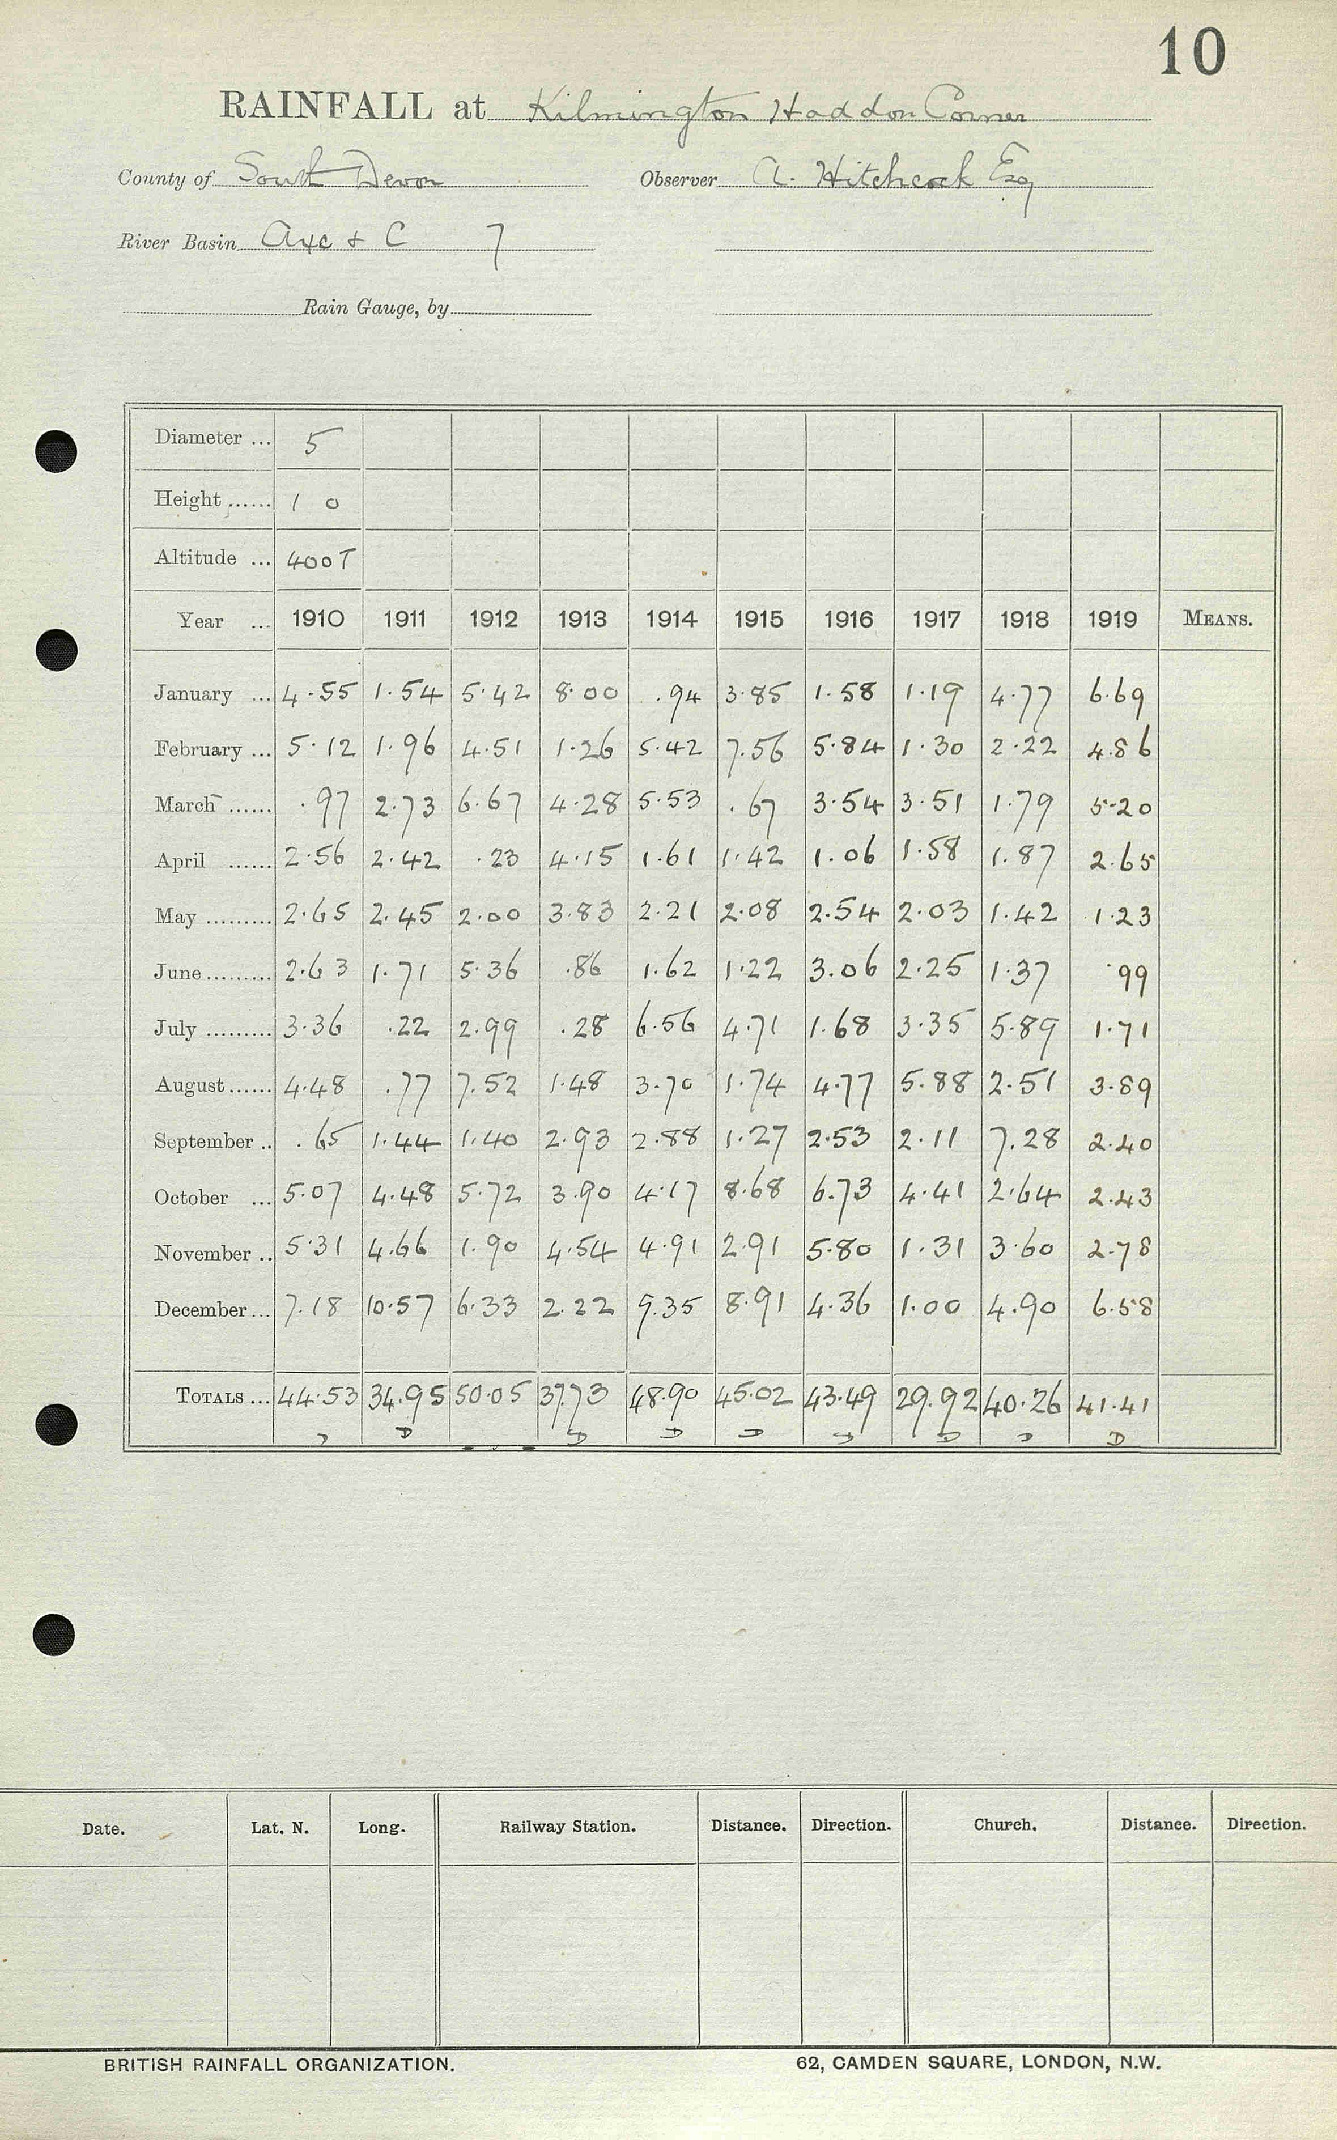 10
RAINFALL at Kilmington Haddon Corner
County of South Devon Observer A. Hitchcock Esq
River Basin Axe & C 7
Rain Gauge, by
Diameter ... 5
Height ...... 1 0
Altitude ... 400 T
Year ... 1910 1911 1912 1913 1914 1915 1916 1917 1918 1919 MEANS.
January ... 4.55 1.54 5.42 8.00 .94 3.85 1.58 1.19 4.77 6.69
February ... 5.12 1.96 4.51 1.26 5.42 7.56 5.84 1.30 2.22 4.86
March ...... .97 2.73 6.67 4.28 5.53 .67 3.54 3.51 1.79 5.20
April ...... 2.56 2.42 .23 4.15 1.61 1.42 1.06 1.58 1.87 2.65
May ......... 2.65 2.45 2.00 3.83 2.21 2.08 2.54 2.03 1.42 1.23
June ......... 2.63 1.71 5.36 .86 1.62 1.22 3.06 2.25 1.37 .99
July ......... 3.36 .22 2.99 .28 6.56 4.71 1.68 3.35 5.89 1.71
August ...... 4.48 .77 7.52 1.48 3.70 1.74 4.77 5.88 2.51 3.89
September .. .65 1.44 1.40 2.93 2.88 1.27 2.53 2.11 7.28 2.40
October ... 5.07 4.48 5.72 3.90 4.17 8.68 6.73 4.41 2.64 2.43
November .. 5.31 4.66 1.90 4.54 4.91 2.91 5.80 1.31 3.60 2.78
December ... 7.18 10.57 6.33 2.22 9.35 8.91 4.36 1.00 4.90 6.58
TOTALS ... 44.53 34.95 50.05 37.73 48.90 45.02 43.49 29.92 40.26 41.41
D D D D D D D D
Date. Lat. N. Long. Railway Station. Distance. Direction. Church. Distance. Direction.
BRITISH RAINFALL ORGANIZATION. 62, CAMDEN SQUARE, LONDON, N.W.